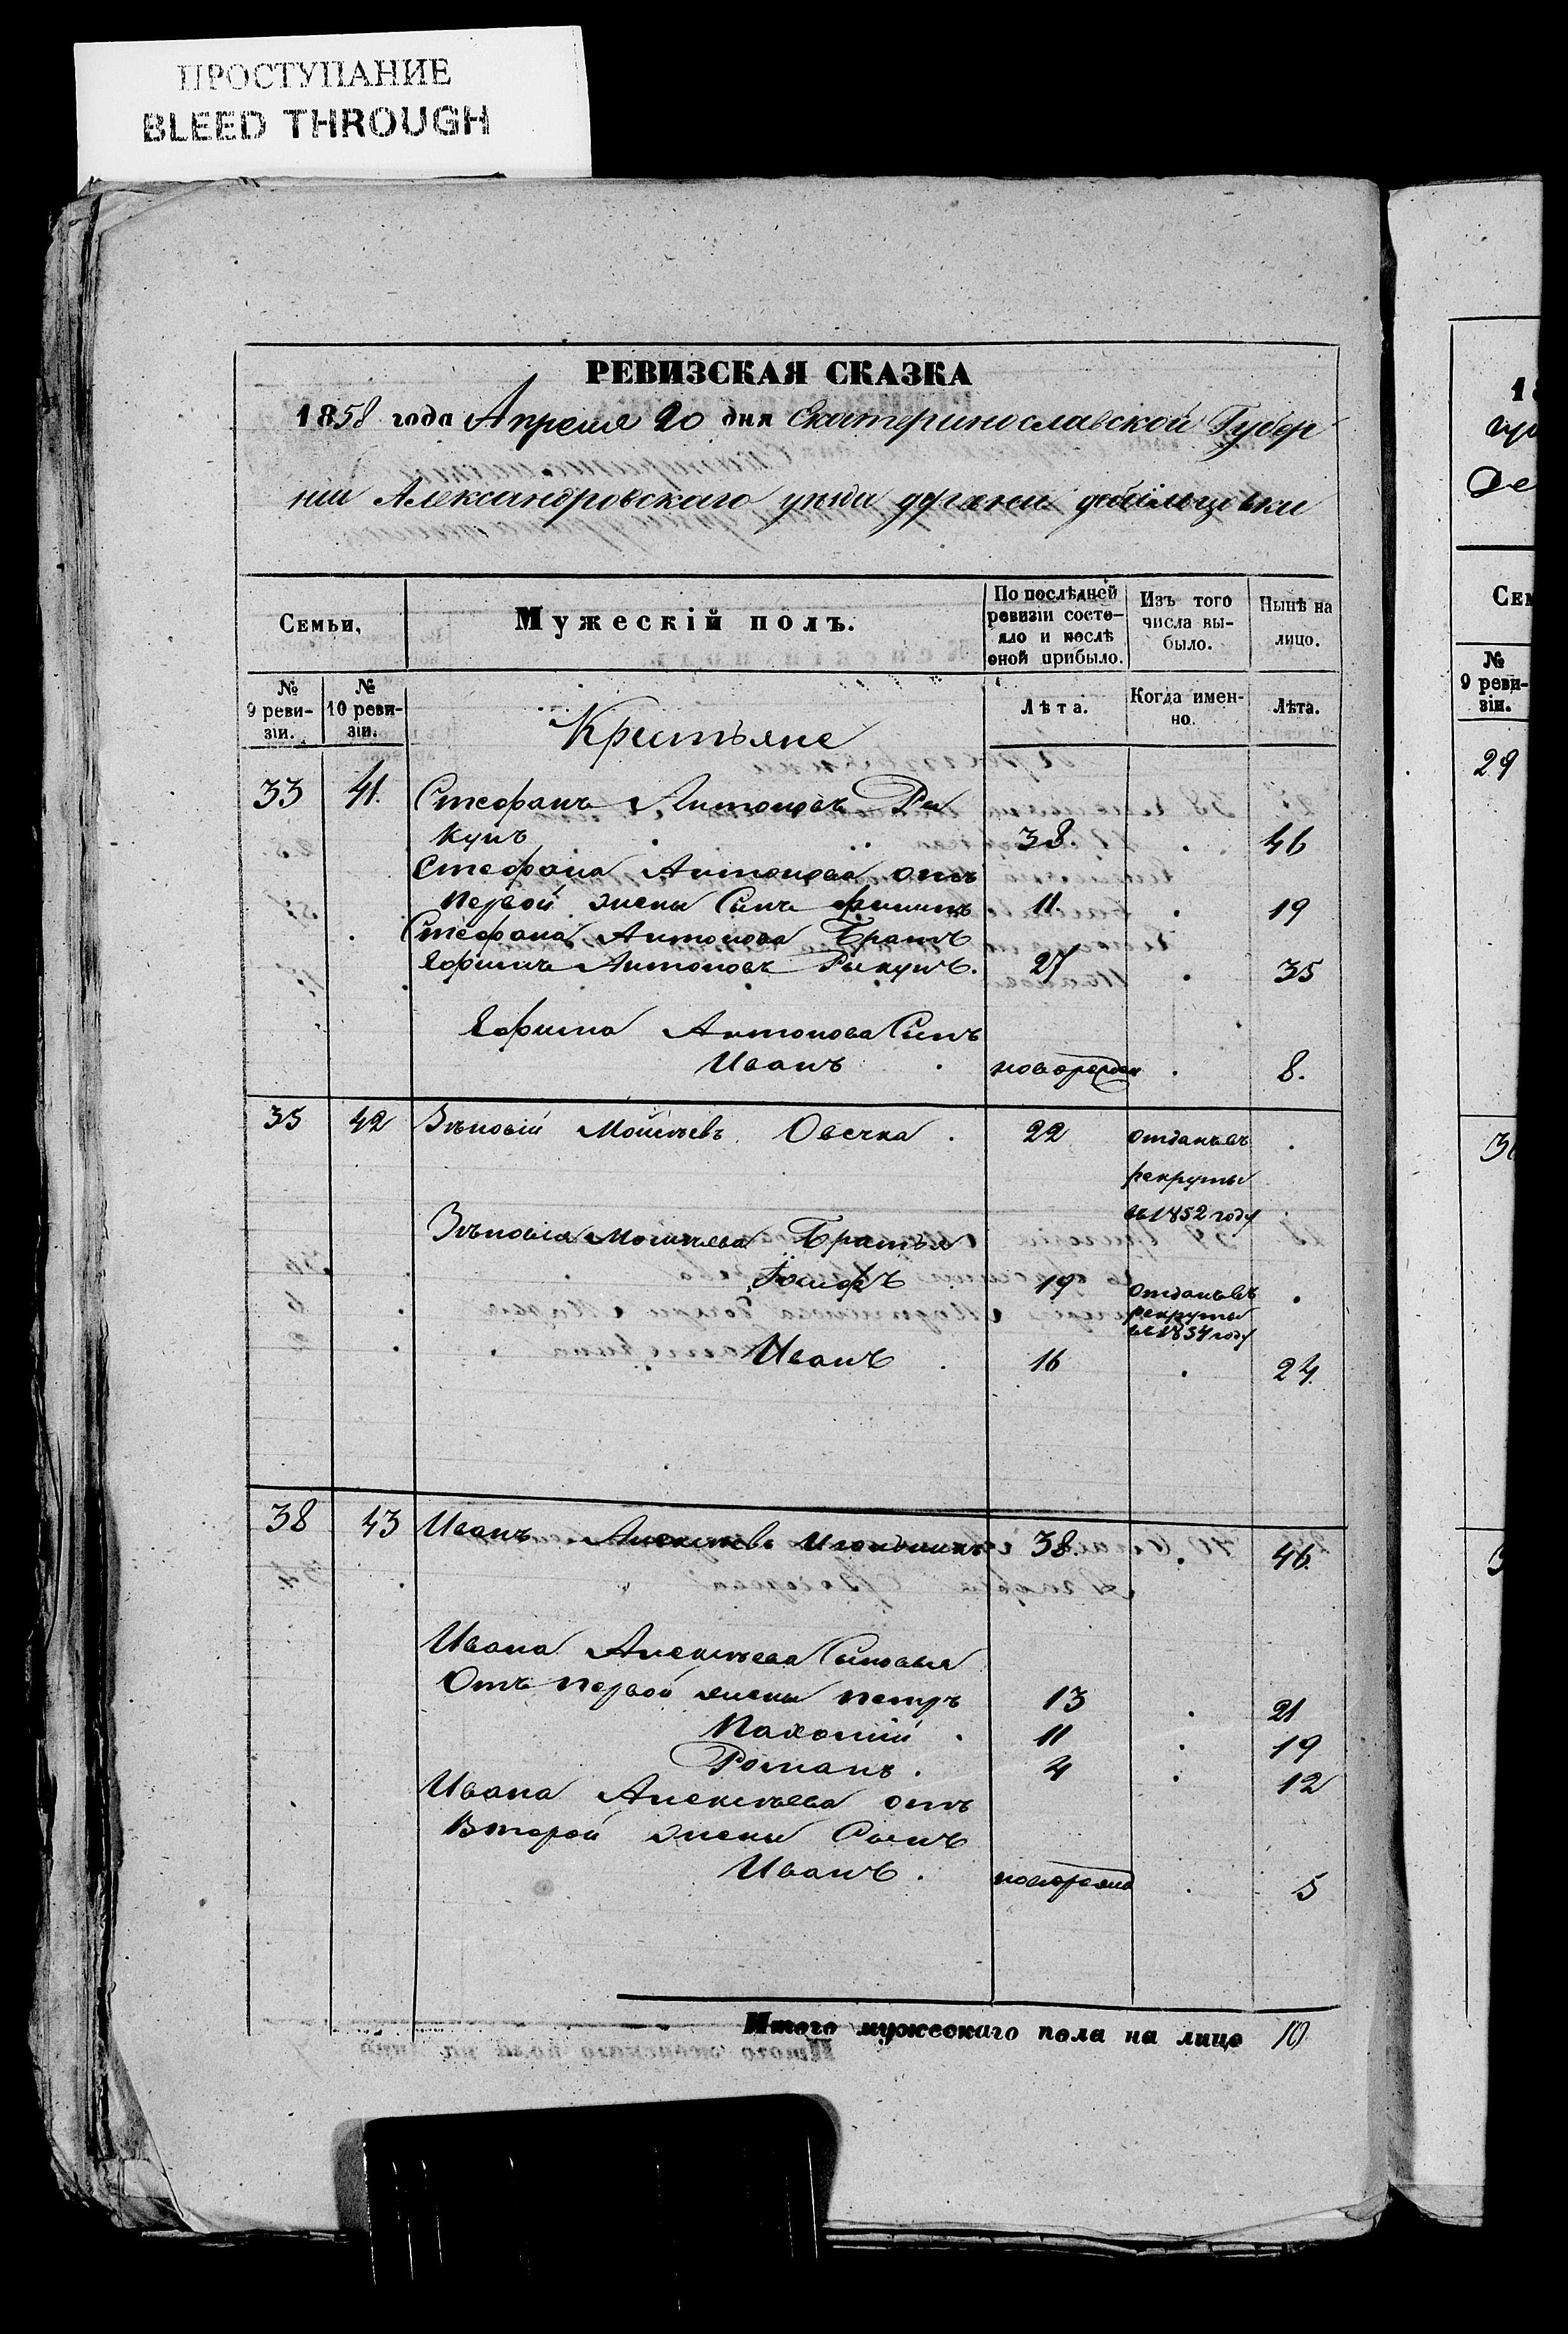 ПРОСТУПАНИЕ
BLEED THROUGH
РЕВИЗСКАЯ СКАЗКА
1858 года Апреля 20 дня Екатеринославской Губер
ніи Александровского уезда
Семьи,
Мужескій полъ.
По послѣдней ревизіи состояло и послѣ оной прибыло.
Изъ того числа выбыло.
Нынѣ на лицо.
№ 9 ревизіи.
№ 10 ревизіи.
Крестьяне
Лѣта.
Когда именно.
Лѣта.
33 41. Стефанъ Антоновъ Ри
кунъ 38. 46
Стефана Антонова отъ
первой жены Сынъ 11. 19
Стефана Антонова Братъ
Ефимъ Антоновъ Рикунъ. 27 35
Ефима Антонова Сынъ
Иванъ новорожден 8.
35 42 Зѣновій Мойсѣевъ Овечка 22 отданъ въ
рекруты
въ 1852 году
Зѣновія Мойсѣева Братья
Іосифъ 19 отданъ въ
рекруты
въ 1854 году
Иванъ 16 24.
38 43 Иванъ Алексѣевъ 38. 46.
Ивана Алексѣева Сыновья
Отъ первой жены петръ 13 21
Пахомій 11 19
Романъ. 4 12
Ивана Алексѣева отъ
Второй жены Сынъ
Иванъ. 5
Итого мужескаго пола на лицо 10
29